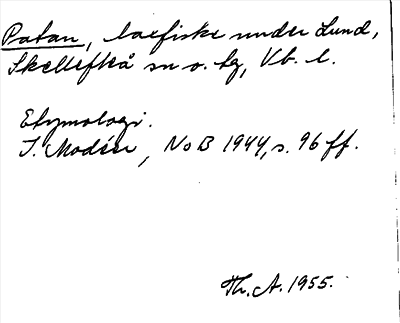 Patan, laxfiske under Lund,
Skellefteå sn o. hg, Vb. l.
Etymologi.
I. Modéer, NoB 1944, s. 96 ff.
Th. A. 1955.